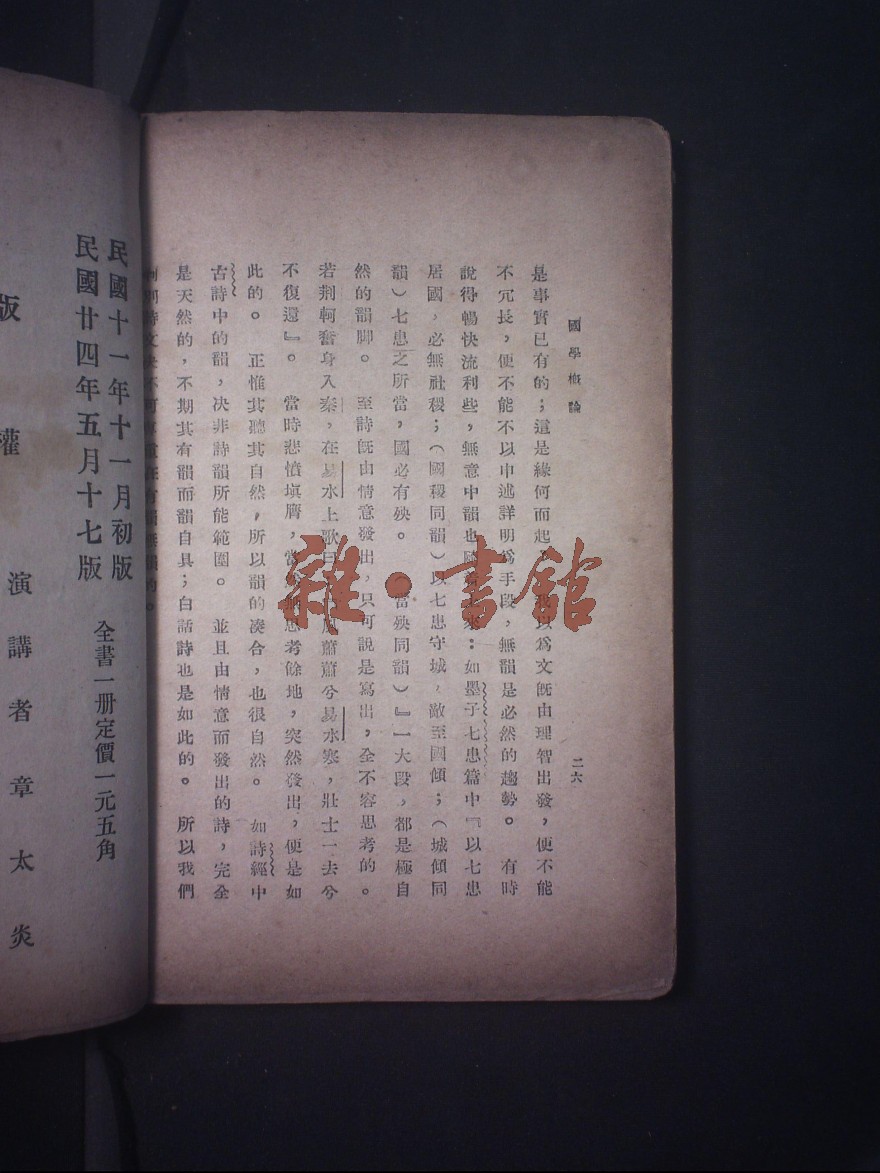 國學概論
二六
是事實已有的；這是緣何而起？我以爲文旣由理智出發，便不能
不冗長，便不能不以申述詳明爲手段，無韻是必然的趨勢。有時
說得暢快流利些，無意中韻也來：如墨子七患篇中『以七患
居國，必無社稷；（國稷同韻）以七患守城，敵至國傾；（城傾同
韻）七患之所當，國必有殃。（當殃同韻）』一大段，都是極自
然的韻脚。至詩旣由情意發出，只可說是寫出，全不容思考的。
若荆軻奮身入秦，在易水上歌曰風蕭蕭兮易水寒，壯士一去兮
不復還』。當時悲憤塡膺，當思考餘地，突然發出，便是如
此的。正惟其聽其自然，所以韻的凑合，也很自然。如詩經中
古詩中的韻，决非詩韻所能範圍。並且由情意而發出的詩，完全
是天然的，不期其有韻而韻自具；白話詩也是如此的。所以我們
民國十一年十一月初版
民國廿四年五月十七版
全書一册定價一元五角
版權
演講者章太炎
雜·書館